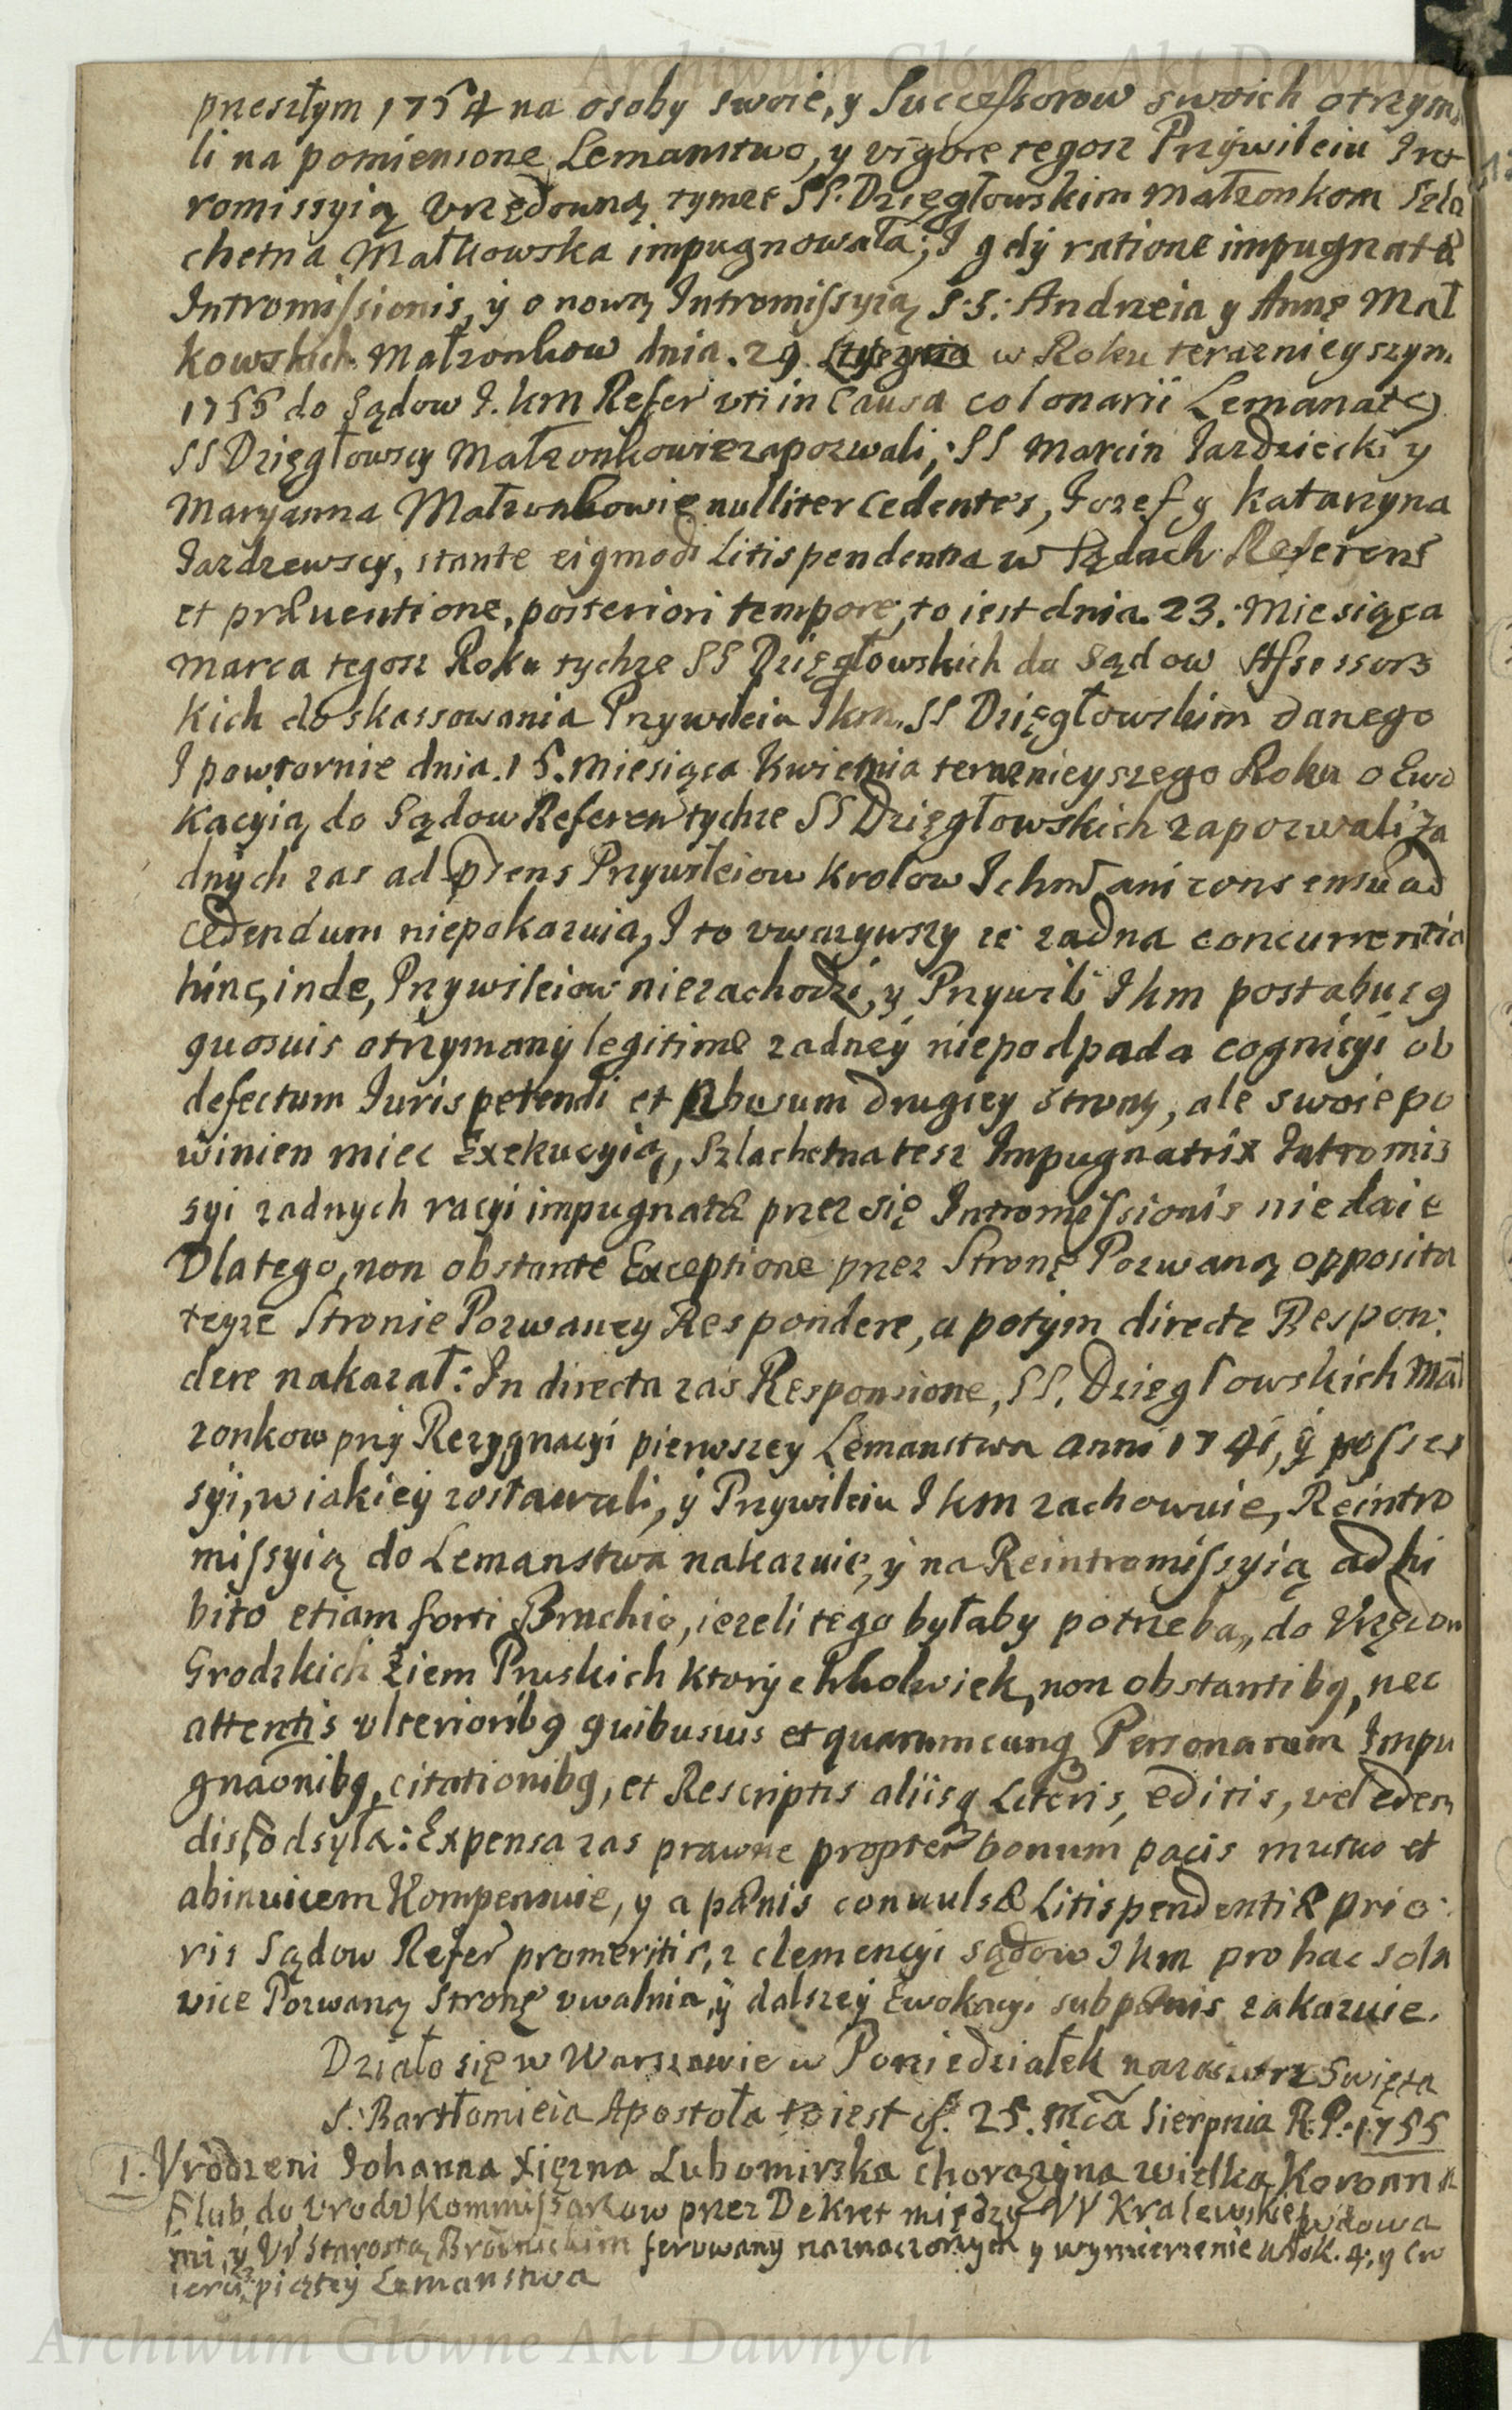 Archiwum Główne Akt Dawnych
przeszłym 1754 na osoby swoie, y Successorow swoich otrzyma
li na pomienione Lemanstwo, y vigore tegosz Przywileiu Int
romissyią Vrzędowną tymze SS. Dzięgłowskim Małzonkom Szla
chetna Małkowska impugnowała; I gdy ratione impugnatæ
Intromissionis, y o nową Intromissyią S.S. Andrzeia y Annę Mał
kowskich Małzonkow dnia. 29. w Roku teraznieyszym
1755 do Sądow I.km Refer vti in Causa colonarii Lemanatq
SS Dzięgłowscy Małzonkowie zapozwali, SS Marcin Jazdziecki y
Maryanna Małzonkowie nulliter Cedentes, Jozef y Katarzyna
Jazdzewscy, stante eigmodi Litispendentia w Sądach Referens
et præuentione, posteriori tempore, to iest dnia. 23. Miesiąca
Marca tegosz Roku tychze SS Dzięgłowskich do Sądow Assessors
kich do skassowania Przywileiu Ikm. SS Dzięgłowskim danego
I powtornie dnia. 15. Miesiąca Kwietnia teraznieyszego Roku o Ewo
kacyią do Sądow Referen tychze SS Dzięgłowskich zapozwali za
dnych zas ad præns Przywileiow Krolow Ichm ani consensu ad
cedendum niepokazuia, I to vwazywszy ze zadna concurrentia
hinc, inde, Przywileiow niezachodzi, y Przywili Ikm post abusq
quosuis otrzymany legitime zadney niepodpada cognicyi ob
defectum Iuris petendi et abusum drugiey strony, ale swoie po
winien miec Exekucyią, Szlachetna tesz Impugnatrix Intromis
syi zadnych racyi impugnatæ przez się Intromissionis niedaie
Dlatego, non obstante Exceptione przez Stronę Pozwaną opposita
teyze Stronie Pozwaney Respondere, a potym directe Respon:
dere nakazał: In directa zas Responsione, SS. Dzięgłowskich Mał
zonkow przy Rezygnacyi pierwszey Lemanstwa anni 1741, y posses
syi, w iakiey zostawali, y Przywileiu Ikm zachowuie, Reintro
missyią do Lemanstwa nakazuie, y na Reintromissyią adhi
bito etiam forti Brachio, iezeli tego byłaby potrzeba, do Vrzędow
Grodzkich Ziem Pruskich ktorychkolwiek, non obstantibq, nec
attentis vlterioribq quibusuis et quarumcunq Personarum Impu
gnaonibq, citationibq, et Rescriptis aliisq Literis, editis, vel eden
dis, odsyła: Expensa zas prawne propter bonum pacis mutuo et
abinuicem Kompensuie, y a pænis conuulsæ Litispendentiæ prio:
ris Sądow Refer promeritis, z clemencyi sądow Ikm pro hac sola
vice Pozwaną Stronę vwalnia, y dalszey Ewokacyi sub pænis zakazuie.
Działo się w Warszawie w Poniedziałek nazaiutrz Swięta
S. Bartłomieia Apostoła to iest d. 25. Mca Sierpnia R.P. 1755
1. Vrodzeni Johanna Xiężna Lubomirska chorązyna wielka Koronna
lub, do Vrodz Kommissarzow przez Dekret między VV Kralewskie Wdowa
mi, y Vr Starostą Brodnickim ferowany naznaczonych y wymierzenie włok. 4, y Cw
ierci piątey Lemanstwa
Archiwum Główne Akt Dawnych